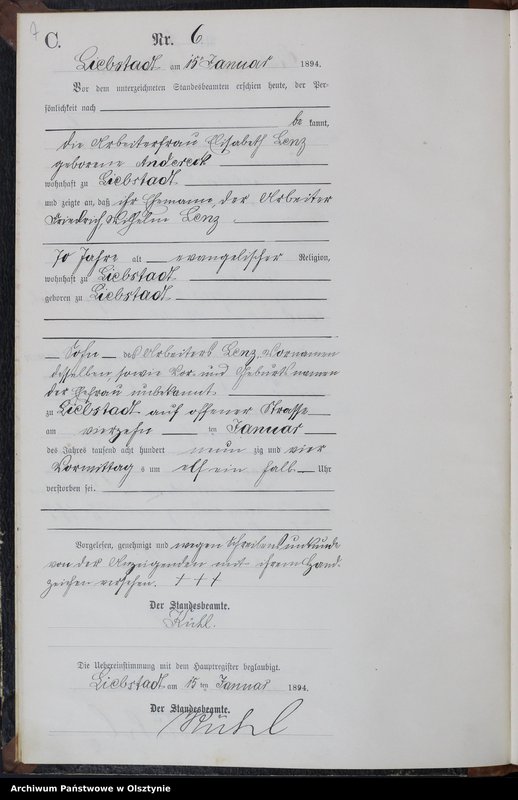 C.
Nr. 6
Liebstadt am 15 Januar 1894.
Vor dem unterzeichneten Standesbeamten erschien heute, der Per-
sönlichkeit nach
be kannt,
die Arbeiterfrau Elisabeth Lenz
geborene Andereck
wohnhaft zu Liebstadt
und zeigte an, daß ihr Ehemann, der Arbeiter
Friedrich, Wilhelm Lenz
70 Jahre alt evangelischer Religion,
wohnhaft zu Liebstadt
geboren zu Liebstadt
Sohn des Arbeiters Lenz, Vornamen
desselben, sowie Vor- und Geburtsnamen
der Ehefrau unbekannt.
zu Liebstadt auf offener Strasse
am vierzehn ten Januar
des Jahres tausend acht hundert neun zig und vier
Vormittag s um elf ein halb Uhr
verstorben sei.
Vorgelesen, genehmigt und wegen Schreibensunkunde
von der Anzeigenden mit ihrem Hand-
zeichen versehen. + + +
Der Standesbeamte.
Kühl.
Die Uebereinstimmung mit dem Hauptregister beglaubigt.
Liebstadt am 15 ten Januar 1894.
Der Standesbeamte.
Kühl
Archiwum Państwowe w Olsztynie